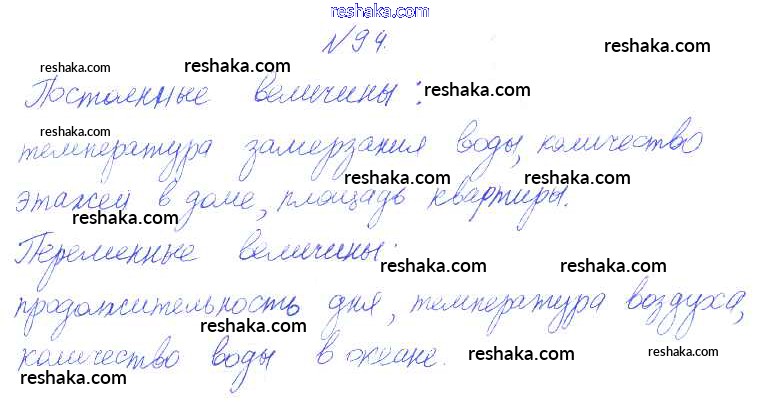 reshaka.com
№94.
reshaka.com
reshaka.com
reshaka.com
Постоянные величины:
reshaka.com
reshaka.com
температура замерзания воды, количество
reshaka.com
reshaka.com
этажей в доме, площадь квартиры.
reshaka.com
Переменные величины:
reshaka.com
reshaka.com
продолжительность дня, температура воздуха,
reshaka.com
количество воды в океане.
reshaka.com
reshaka.com
reshaka.com